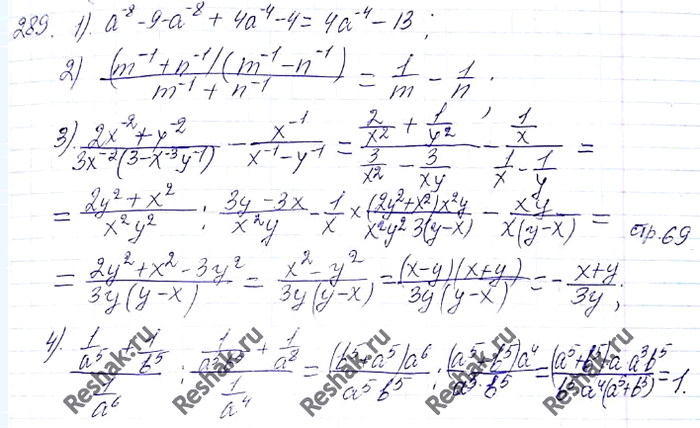 289. 1). a⁻⁸ - 9 - a⁻⁸ + 4a⁻⁴ - 4 = 4a⁻⁴ - 13 ;
2) (m⁻¹ + n⁻¹)(m⁻¹ - n⁻¹) / (m⁻¹ + n⁻¹) = 1/m - 1/n .
3) (2x⁻² + y⁻²) / (3x⁻²(3 - x⁻³y⁻¹)) - x⁻¹ / (x⁻¹ - y⁻¹) = (2/x² + 1/y²) / (3/x² - 3/xy) - (1/x) / (1/x - 1/y) =
= (2y² + x²) / x²y² : (3y - 3x) / x²y - 1/x × (2y² + x²)x²y / x²y² 3(y - x) - xy / x(y - x) =
стр.69
= (2y² + x² - 3y²) / 3y(y - x) = (x² - y²) / 3y(y - x) = (x - y)(x + y) / 3y(y - x) = - (x + y) / 3y ;
4) (1/a⁵ + 1/b⁵) / (1/a⁶) : (1/a³b⁵ + 1/a⁸) / (1/a⁴) = (b⁵ + a⁵)a⁶ / a⁵b⁵ : (a⁵ + b⁵)a⁴ / a³b⁵ = (a⁵ + b⁵) a a³b⁵ / b⁵a⁴(a⁵ + b⁵) = 1.
Reshak.ru
Reshak.ru
Reshak.ru
Reshak.ru